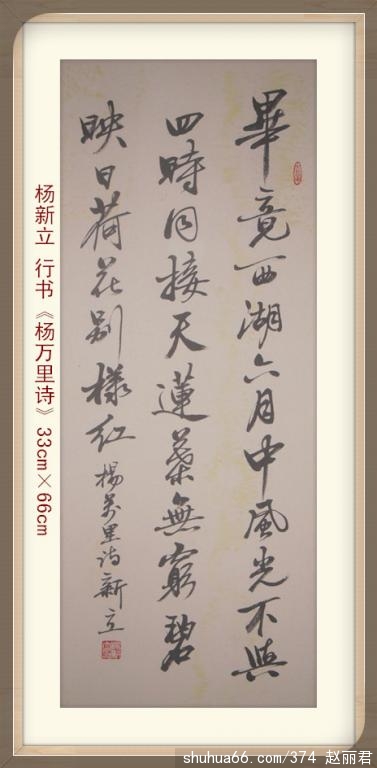 畢竟西湖六月中風光不與
四時同接天蓮葉無窮碧
映日荷花别樣红
楊萬里詩新立
杨新立 行书《杨万里诗》33cm×66cm
shuhua66.com/374 赵丽君